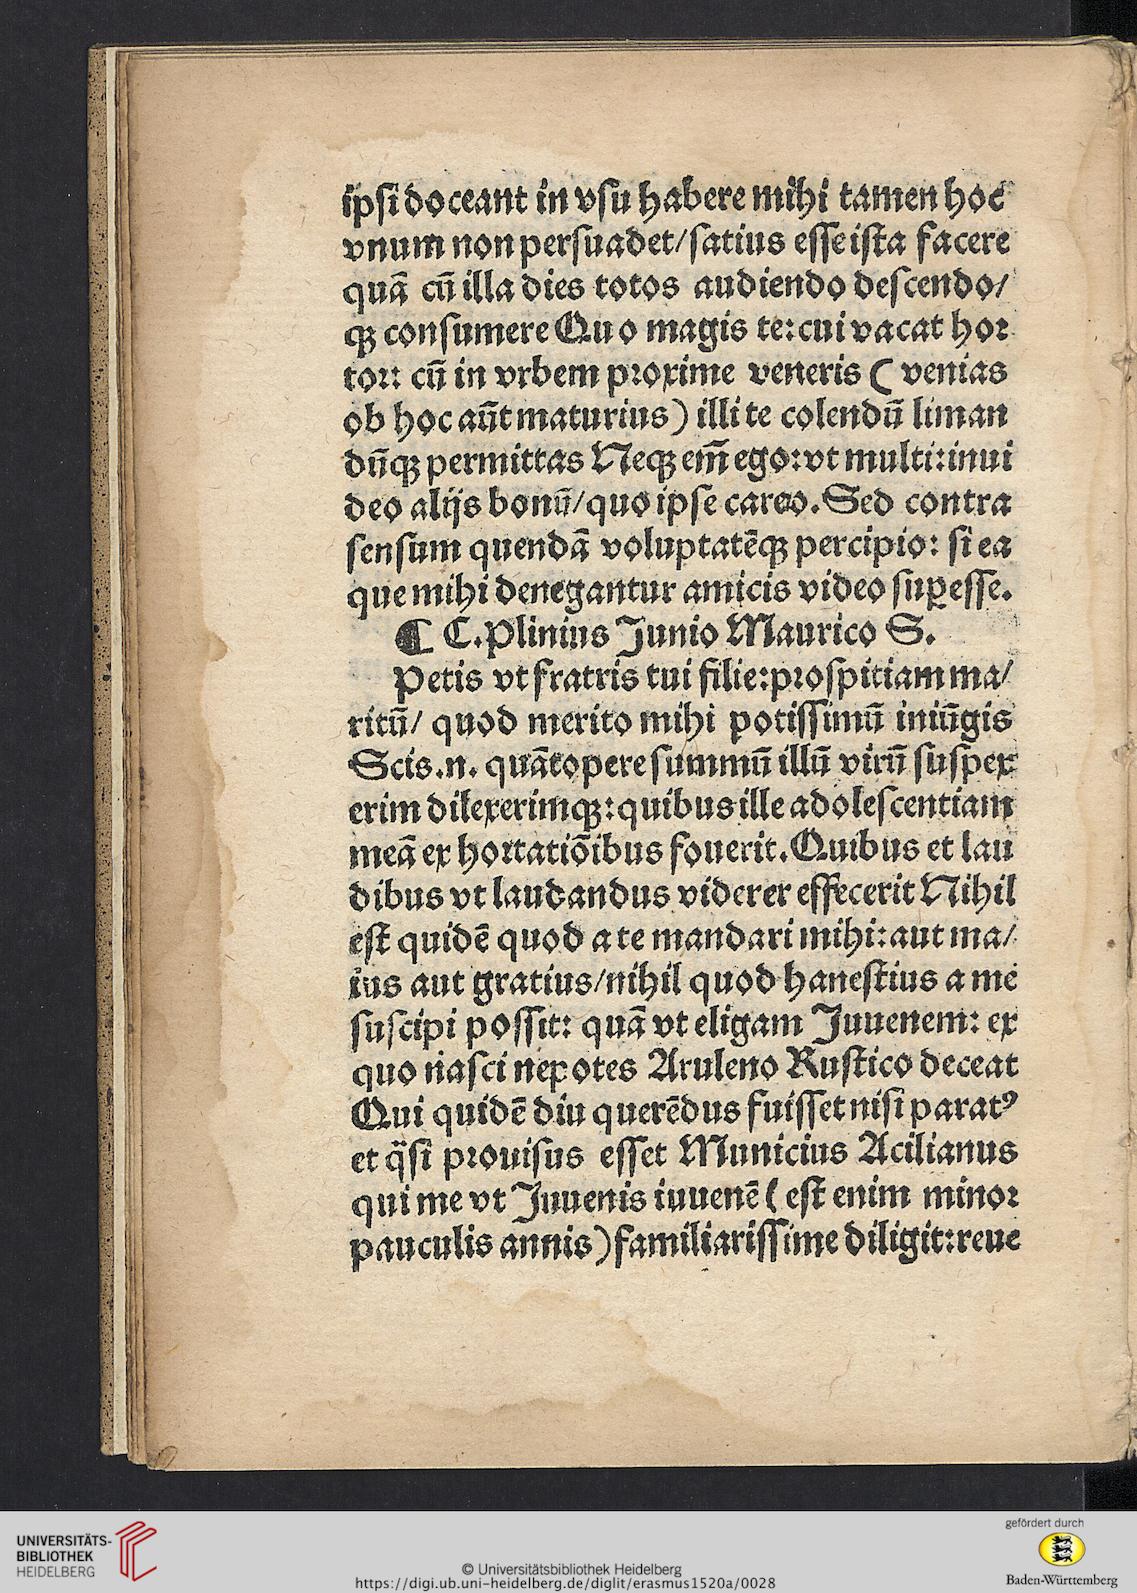 ipsi doceant in vsu habere mihi tamen hoc
vnum non persuadet/satius esse ista facere
quā cū illa dies totos audiendo descendo/
qꝫ consumere Quo magis te:cui vacat hor
tor: cū in vrbem proxime veneris ( venias
ob hoc aūt maturius) illi te colendū liman
dūqꝫ permittas Neqꝫ em̄ ego:vt multi:inui
deo alijs bonū/quo ipse careo. Sed contra
sensum quendā voluptatēqꝫ percipio: si ea
que mihi denegantur amicis video suꝑesse.
¶ C.Plinius Junio Maurico S.
Petis vt fratris tui filie:prospitiam ma/
ritū/ quod merito mihi potissimū iniūgis
Scis.n. quātopere summū illū virū suspex
erim dilexerimqꝫ:quibus ille adolescentiam
meā ex hortatiōibus fouerit. Quibus et lau
dibus vt laudandus viderer effecerit Nihil
est quidē quod a te mandari mihi:aut ma/
ius aut gratius/nihil quod hanestius a me
suscipi possit: quā vt eligam Juuenem: ex
quo nasci nepotes Aruleno Rustico deceat
Qui quidē diu querēdus fuisset nisi paratꝰ
et q̈si prouisus esset Municius Acilianus
qui me vt Juuenis iuuenē ( est enim minor
pauculis annis) familiarissime diligit:reue
UNIVERSITÄTS-
BIBLIOTHEK
HEIDELBERG
© Universitätsbibliothek Heidelberg
https://digi.ub.uni-heidelberg.de/diglit/erasmus1520a/0028
gefördert durch
Baden-Württemberg